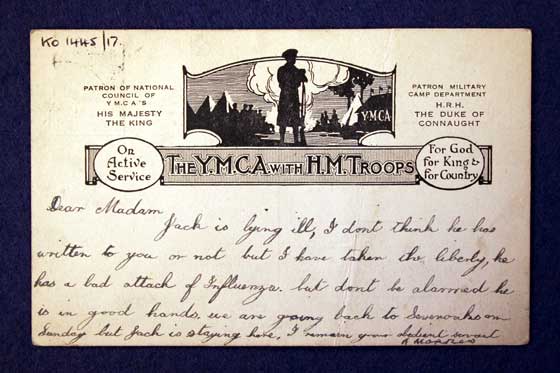 KO 1445/17.
PATRON OF NATIONAL
COUNCIL OF
Y.M.C.A'S
HIS MAJESTY
THE KING
YMCA
PATRON MILITARY
CAMP DEPARTMENT
H.R.H.
THE DUKE OF
CONNAUGHT
On
Active
Service
THE Y.M.C.A. WITH H.M. TROOPS
For God
for King &
for Country.
Dear Madam
Jack is lying ill, I dont think he has
written to you or not but I have taken the liberty, he
has a bad attack of Influenza. but dont be alarmed he
is in good hands. we are going back to Sevenoaks on
Sunday but Jack is staying here, I remain your obedient servant